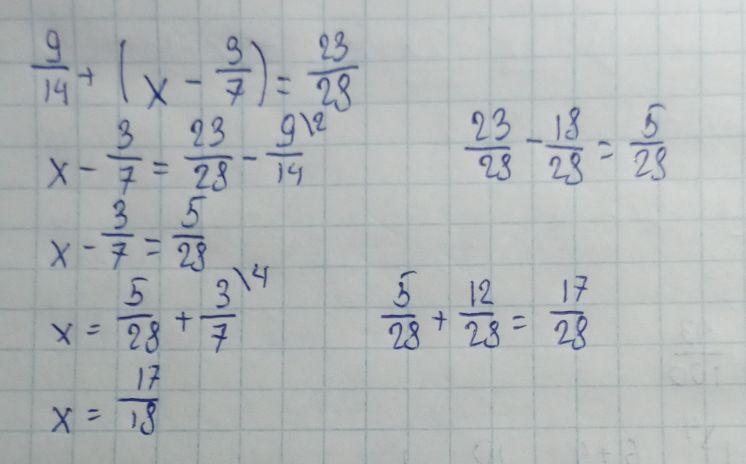 9/14 + (x - 3/7) = 23/28
x - 3/7 = 23/28 - 9\2/14
23/28 - 18/28 = 5/28
x - 3/7 = 5/28
x = 5/28 + 3\4/7
5/28 + 12/28 = 17/28
x = 17/18